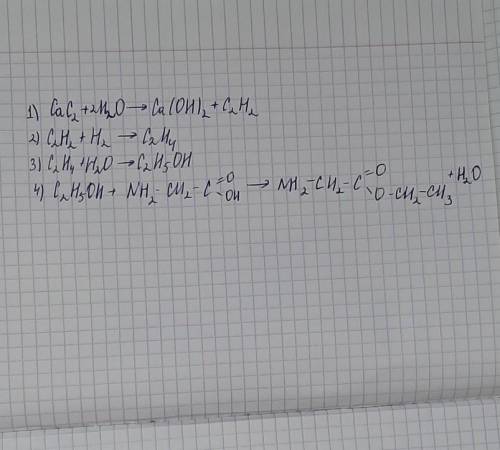 1) CaC₂ + 2H₂O → Ca(OH)₂ + C₂H₂
2) C₂H₂ + H₂ → C₂H₄
3) C₂H₄ + H₂O → C₂H₅OH
4) C₂H₅OH + NH₂ - CH₂ - C =O OH → NH₂ - CH₂ - C =O O - CH₂ - CH₃ + H₂O